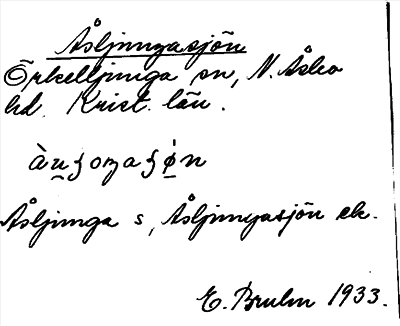 Åsljungasjön
Örkelljunga sn, N. Åsbo
hd. Krist. län.
Åsljunga s, Åsljungasjön ek.
E. Bruhn 1933.